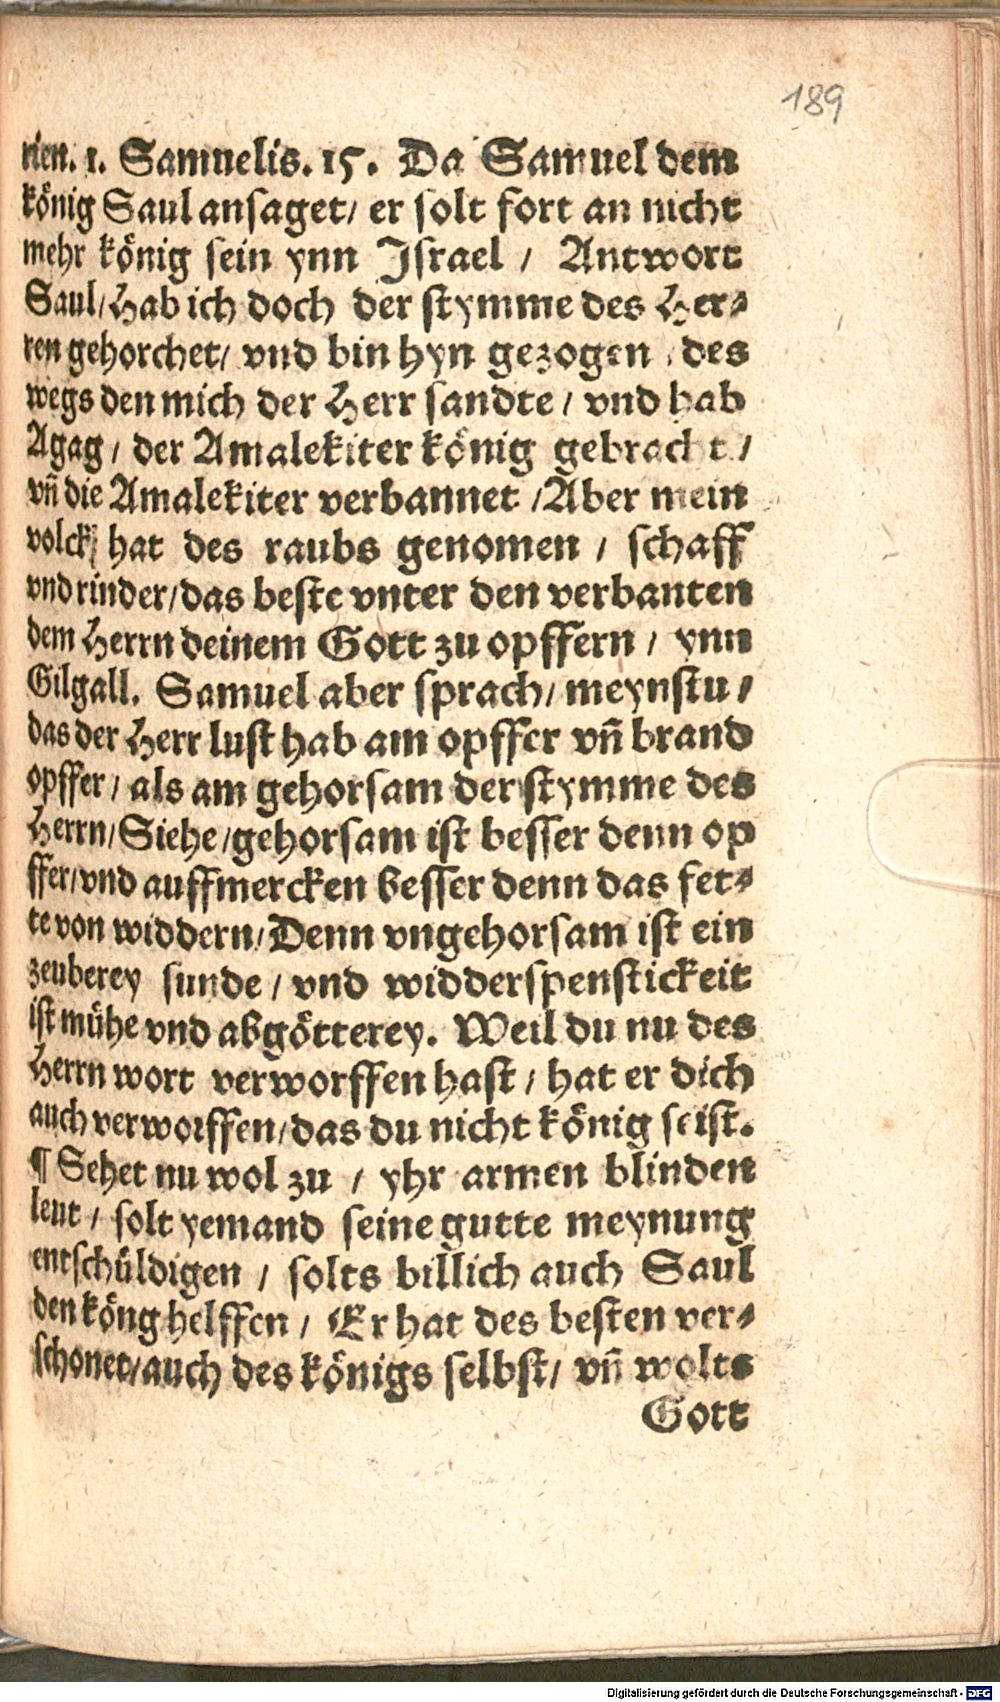 189
rien. 1. Samuelis. 15. Da Samuel dem
könig Saul ansaget/ er solt fort an nicht
mehr könig sein ynn Israel / Antwort
Saul/Hab ich doch der stymme des Her⸗
ren gehorchet/ vnd bin hyn gezogen / des
wegs den mich der Herr sandte / vnd hab
Agag / der Amalekiter könig gebracht /
vñ die Amalekiter verbannet /Aber mein
volck/ hat des raubs genomen / schaff
vnd rinder/das beste vnter den verbanten
dem Herrn deinem Gott zu opffern / ynn
Gilgall. Samuel aber sprach/ meynstu /
das der Herr lust hab am opffer vñ brand
opffer / als am gehorsam der stymme des
Herrn/Siehe/gehorsam ist besser denn op
ffer/vnd auffmercken besser denn das fet⸗
te von widdern/Denn vngehorsam ist ein
zeuberey sunde / vnd widderspenstickeit
ist mühe vnd abgötterey. Weil du nu des
Herrn wort verworffen hast / hat er dich
auch verworffen/das du nicht könig seist.
¶ Sehet nu wol zu / yhr armen blinden
leut / solt yemand seine gutte meynung
entschüldigen / solts billich auch Saul
den köng helffen / Er hat des besten ver⸗
schonet/auch des königs selbst/ vñ wolts
Gott
Digitalisierung gefördert durch die Deutsche Forschungsgemeinschaft - DFG